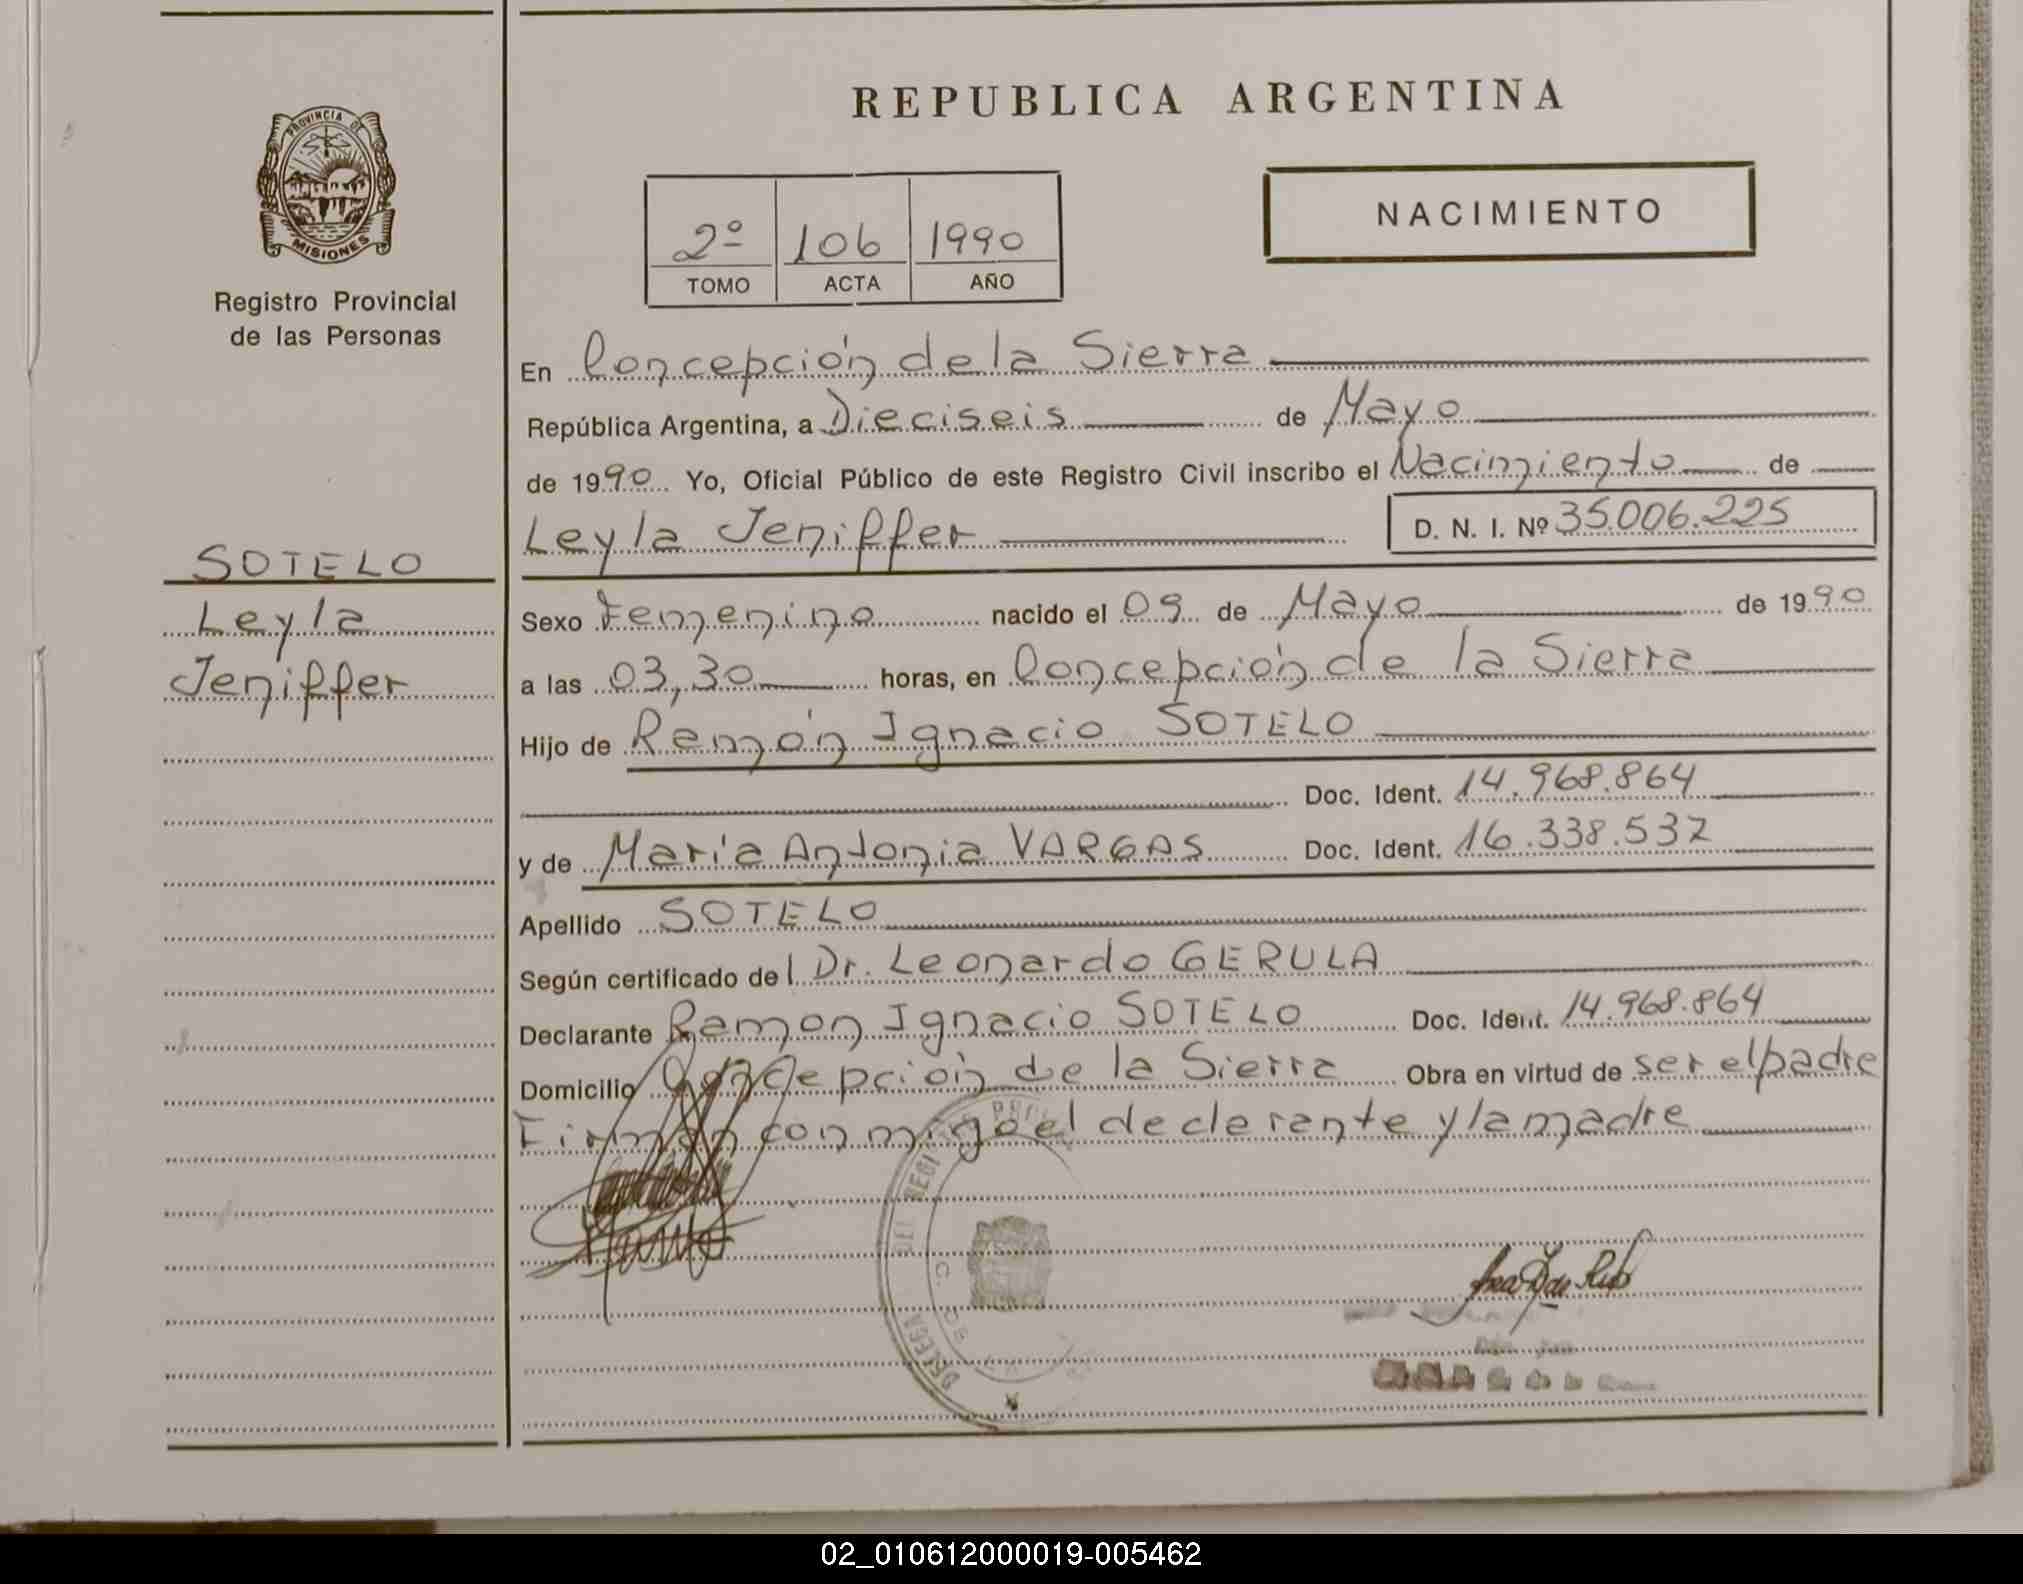 REPUBLICA ARGENTINA
PROVINCIA DE
MISIONES
Registro Provincial
de las Personas
2º 106 1990
TOMO ACTA AÑO
NACIMIENTO
SOTELO
Leyla
Jeniffer
En Concepción de la Sierra
República Argentina, a Dieciseis de Mayo
de 1990 Yo, Oficial Público de este Registro Civil inscribo el Nacimiento de
Leyla Jeniffer D. N. I. Nº 35.006.225
Sexo Femenino nacido el 09 de Mayo de 1990
a las 03,30 horas, en Concepción de la Sierra
Hijo de Ramón Ignacio SOTELO
Doc. Ident. 14.968.864
y de María Antonia VARGAS Doc. Ident. 16.338.537
Apellido SOTELO
Según certificado del Dr. Leonardo GERULA
Declarante Ramon Ignacio SOTELO Doc. Ident. 14.968.864
Domicilio Concepción de la Sierra Obra en virtud de ser el padre
Firman conmigo el declarante y la madre
02_010612000019-005462